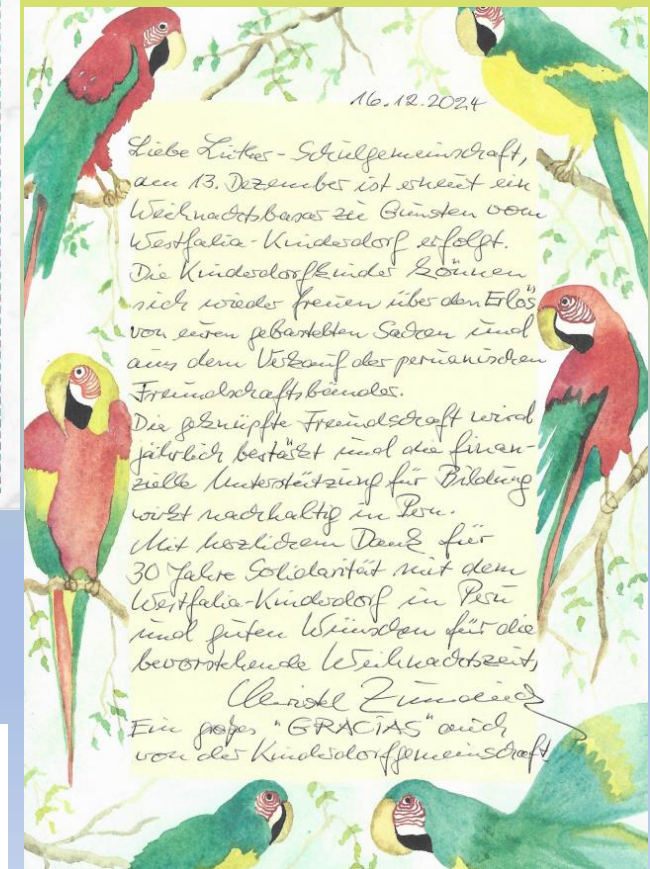 16.12.2024
Liebe Luther-Schulgemeinschaft,
am 13. Dezember ist erneut ein
Weihnachtsbasar zu Gunsten vom
Westfalia-Kinderdorf erfolgt.
Die Kinderdorfkinder können
sich wieder freuen über den Erlös
von euren gebastelten Sachen und
aus dem Verkauf der peruanischen
Freundschaftsbänder.
Die geknüpfte Freundschaft wird
jährlich bestärkt und die finan-
zielle Unterstützung für Bildung
wirkt nachhaltig in Peru.
Mit herzlichem Dank für
30 Jahre Solidarität mit dem
Westfalia-Kinderdorf in Peru
und guten Wünschen für die
bevorstehende Weihnachtszeit,
Christel
Ein großes "GRACIAS" auch
von der Kinderdorfgemeinschaft